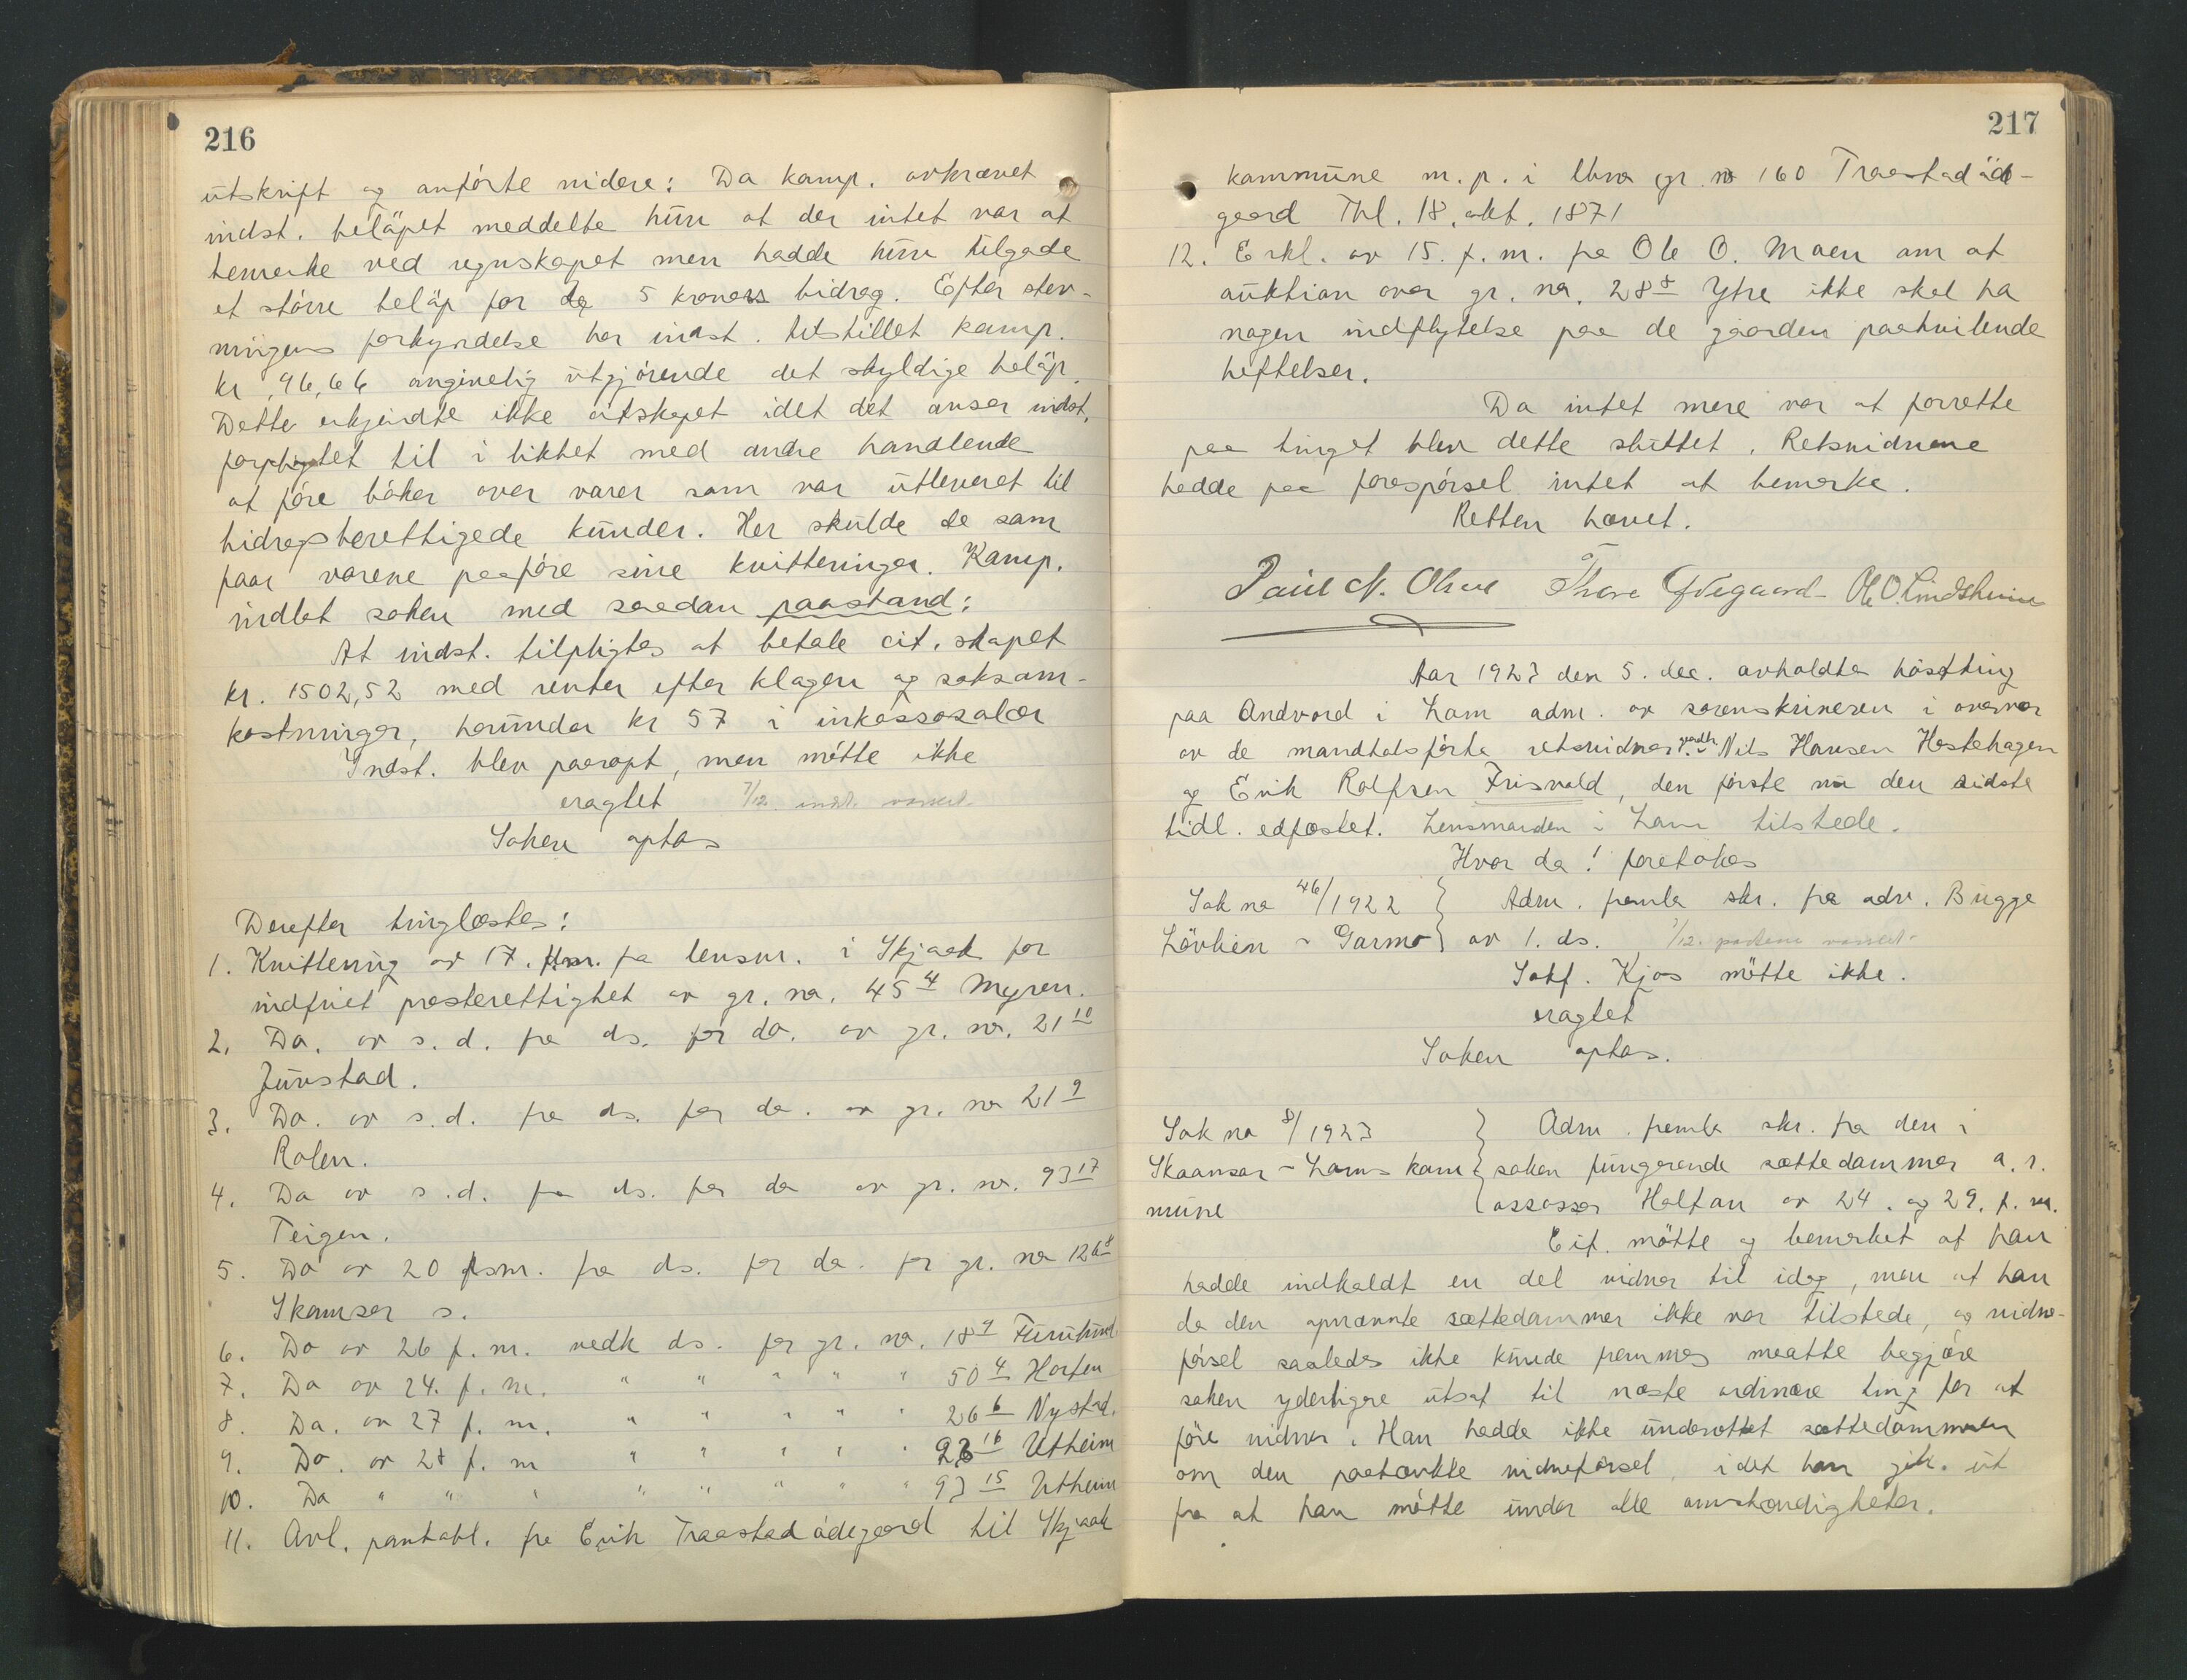 216
utskrift og anførte videre: Da komp. avkrævet
indst. beløpet meddelte hun at der intet var at
bemerke ved regnskapet men hadde hun tilgode
et større beløp for de 5 kroners bidrag. Efter stev-
ningens forkyndelse har indst. tilstillet komp.
kr. 96,66 angivelig utgjørende det skyldige beløp.
Dette erkjendte ikke citskapet idet det anser indst.
forpligtet til i likhet med andre handlende
at føre bøker over varer som var utleveret til
bidragsberettigede kunder. Her skulde de som
faar varene paaføre sine kvitteringer. Komp.
indlot saken med saadan paastand:
At indst. tilpligtes at betale cit.skapet
kr. 1502,52 med renter efter klagen og saksom-
kostninger, herunder kr 57 i inkassosalær
Indst. blev paaropt, men møtte ikke
eragtet 7/12. indst. varslet.
Saken optas
Derefter tinglæstes:
1. Kvittering av 17. f.m. fra lensm. i Skjaak for
indfriet presterettighet av gr. no. 45 4 Myren.
2. Do. av s. d. fra ds. for do. av gr. no. 21 10
Furustad.
3. Do. av s.d. fra ds. for do. av gr. no 21 9
Rolen.
4. Do av s.d. fra ds. for do av gr. no. 93 17
Teigen.
5. Do av 20 f.m. fra ds. for do. for gr. no 126 8
Skamsar s.
6. Do av 26 f.m. vedk ds. for gr. no. 18 9 Furulund
7. Do av 24. f. m. " " " " " 50 4 Horten
8. Do. av 27 f. m. " " " " " 26 6 Nystad.
9. Do. av 28 f. m " " " " " 93 16 Utheim
10. Do " " " " " " " " 93 15 Utheim
11. Avl. pantobl. fra Erik Traastadødegaard til Skjaak
217
kommune m. p. i Ura gr. no 160 Traastadøde-
gaard Thl. 18. okt. 1871
12. Erkl. av 15. f. m. fra Ole O. Moen om at
auktion over gr. no. 28 8 Ytre ikke skal ha
nogen indflytelse paa de gaarden paahvilende
heftelser.
Da intet mere var at forrette
paa tinget blev dette sluttet. Retsvidnene
hadde paa forespørsel intet at bemerke.
Retten hævet.
Paul N. Olsen Thore Ødegaard Ole O. Lindsheim
Aar 1923 den 5. dec. avholdtes høstting
paa Andvord i Lom adm. av sorenskriveren i overvær
av de mandtalsførte retsvidner: Nils Hansen Hestehagen
og Erik Rolfsen Frisvold, den første nu den sidste
tidl. edfæstet. Lensmanden i Lom tilstede.
Hvor da! foretokes
Sak no 46/1922 } Adm. fremla skr. fra adv. Bugge
Løvlien - Garmo } av 1. ds. 7/12. partene varslet.
Sakf. Kjos møtte ikke.
eragtet
Saken optas.
Sak no 8/1923 } Adm. fremla skr. fra den i
Skaansar - Loms kom- } saken fungerende sættedommer a. r.
mune { assessor Holtan av 24. og 29. f. m.
Cit. møtte og bemerket at han
hadde indkaldt en del vidner til idag, men at han
da den opnævnte sættedommer ikke var tilstede, og vidne-
førsel saaledes ikke kunde fremmes maatte begjære
saken yderligere utsat til næste ordinære ting for at
føre vidner. Han hadde ikke underrettet sættedommeren
om den paatænkte vidneførsel, idet han gik ut
fra at han møtte under alle omstændigheter.